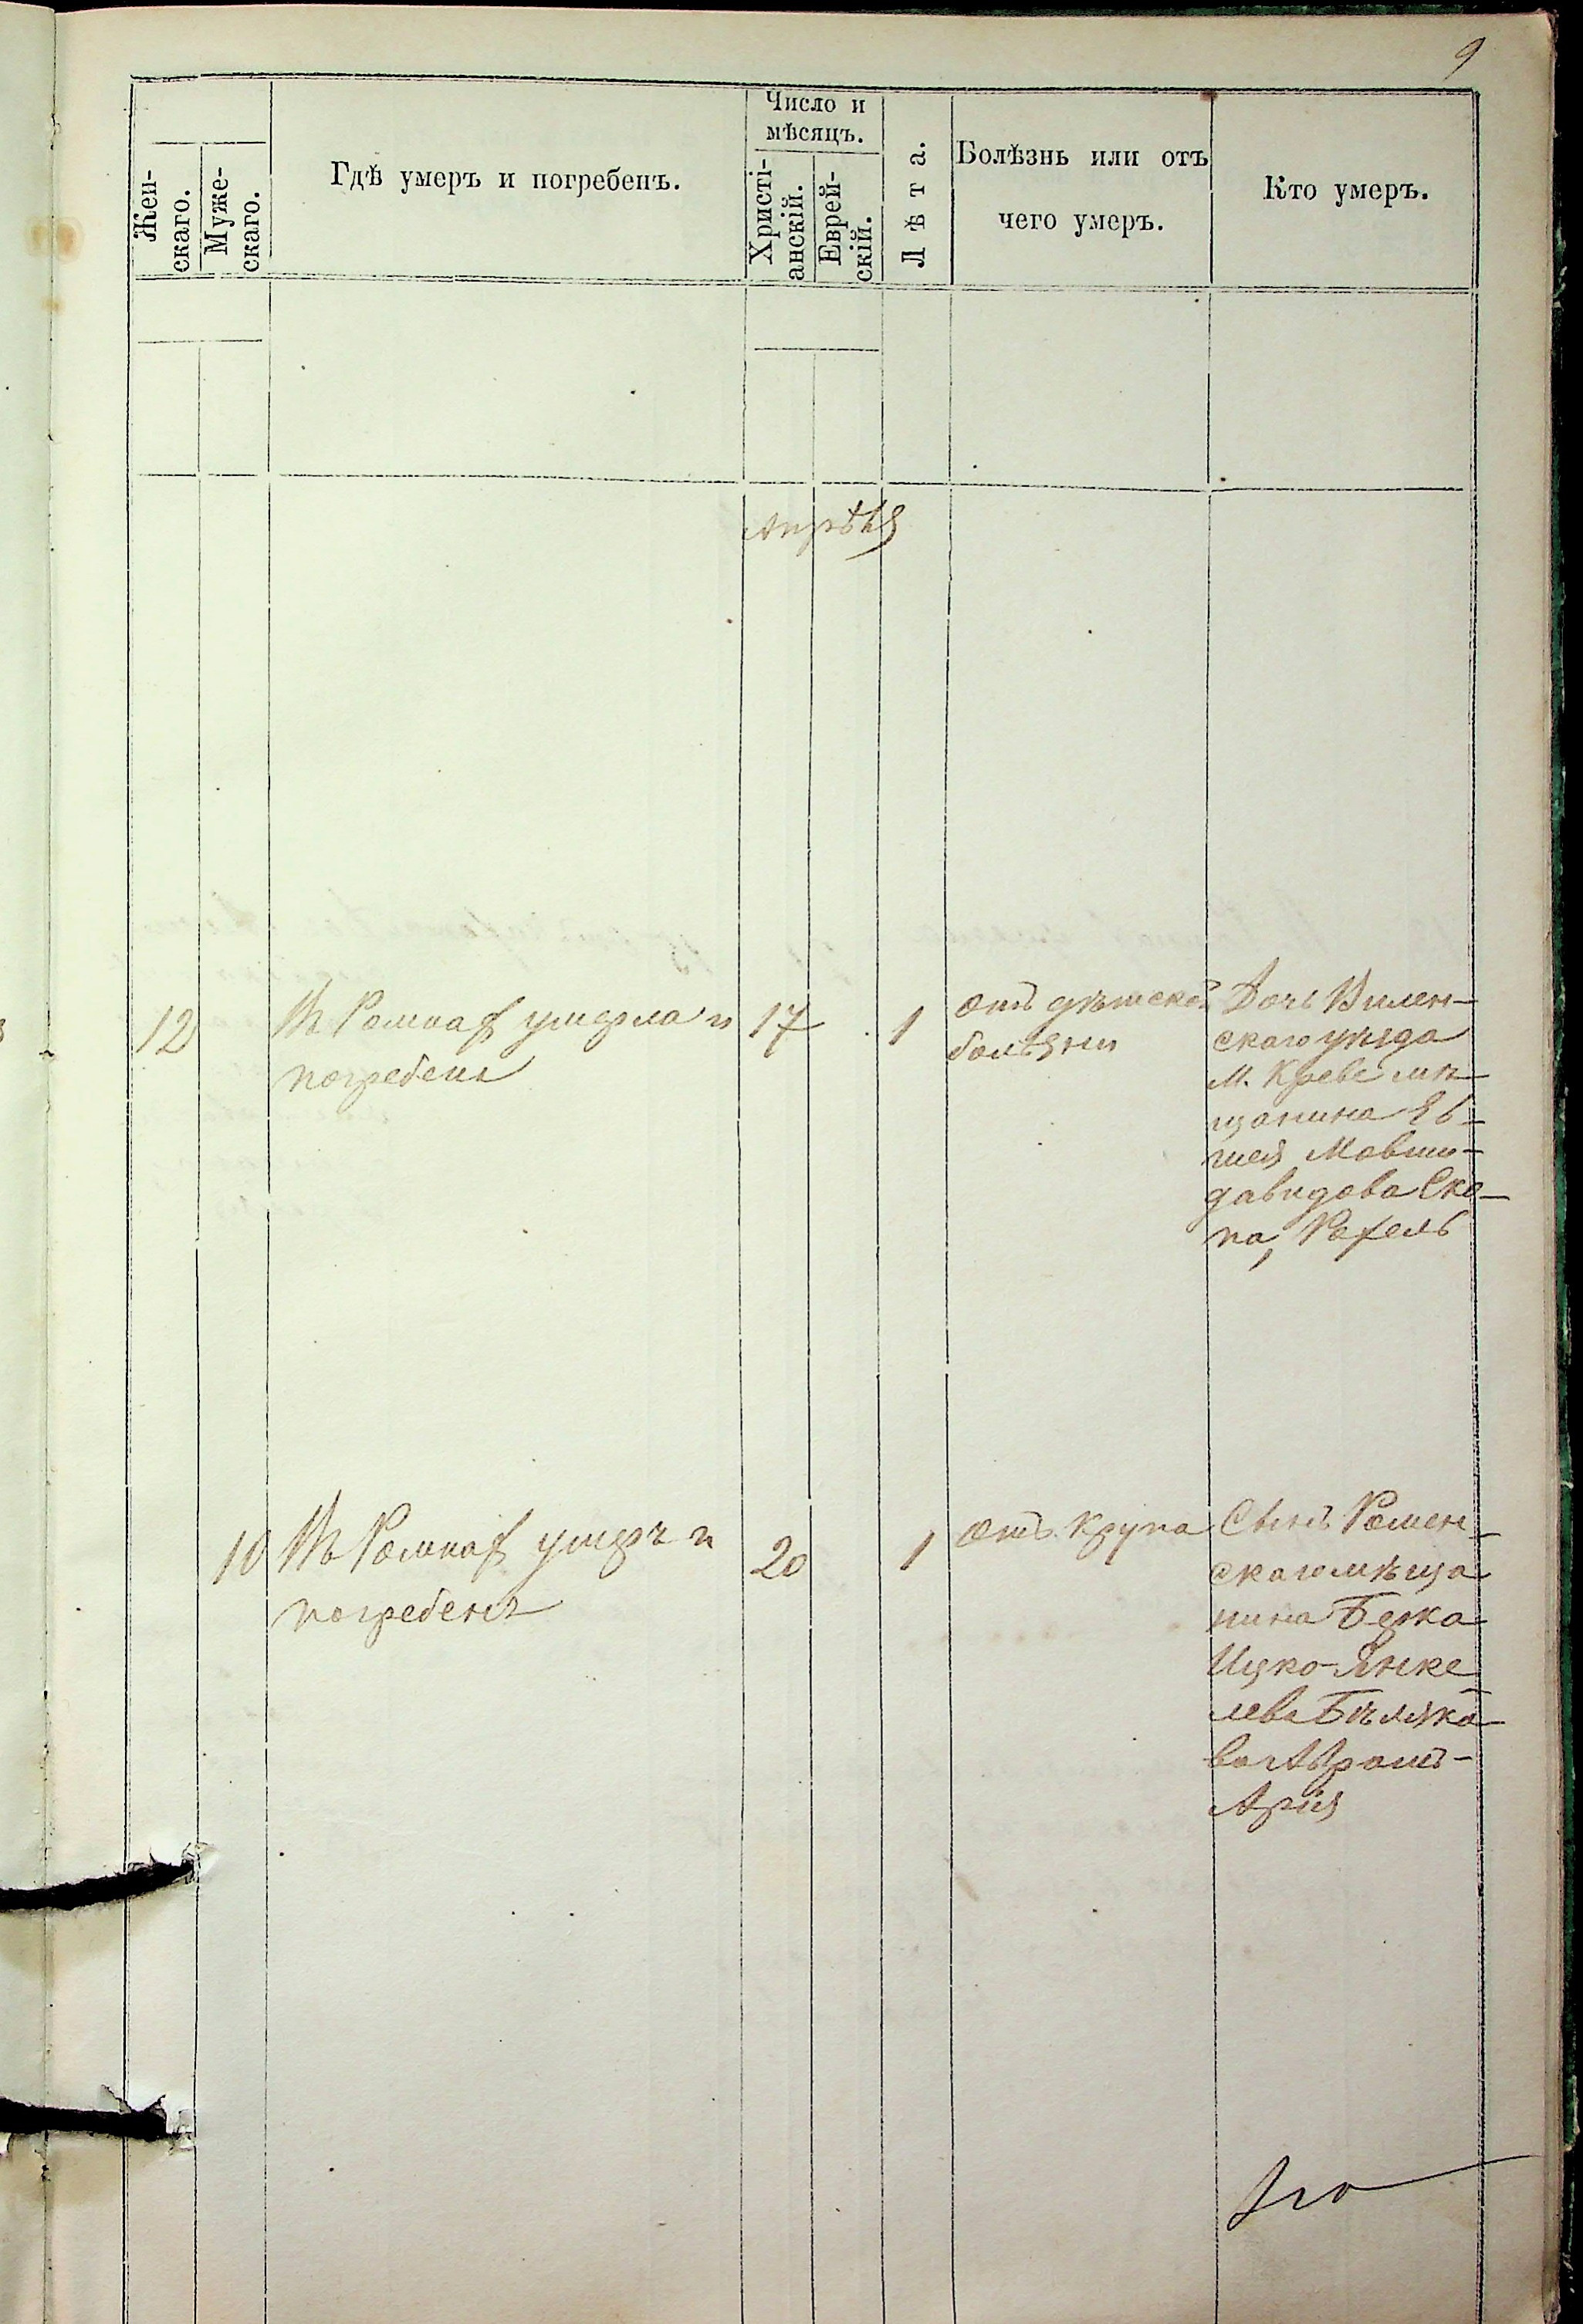 9
Жен-
скаго.
Муже-
скаго.
Гдѣ умеръ и погребенъ.
Число и
мѣсяцъ.
Христі-
анскій.
Еврей-
скій.
Лѣта.
Болѣзнь или отъ
чего умеръ.
Кто умеръ.
Апрѣля
12
Въ Ромнахъ умерла и
погребена
17
1
Отъ дѣтской
болѣзни
Дочь Вилен-
скаго уѣзда
М. Крево мѣ-
щанина
Мовши-
давидова
Рохель
10
Въ Ромнахъ умеръ и
погребенъ
20
1
Отъ крупа
Сынъ Ромен-
скаго мѣща-
нина Берка
Ицко-Янке
лева Бѣляко
ва Абрамъ-
Арія